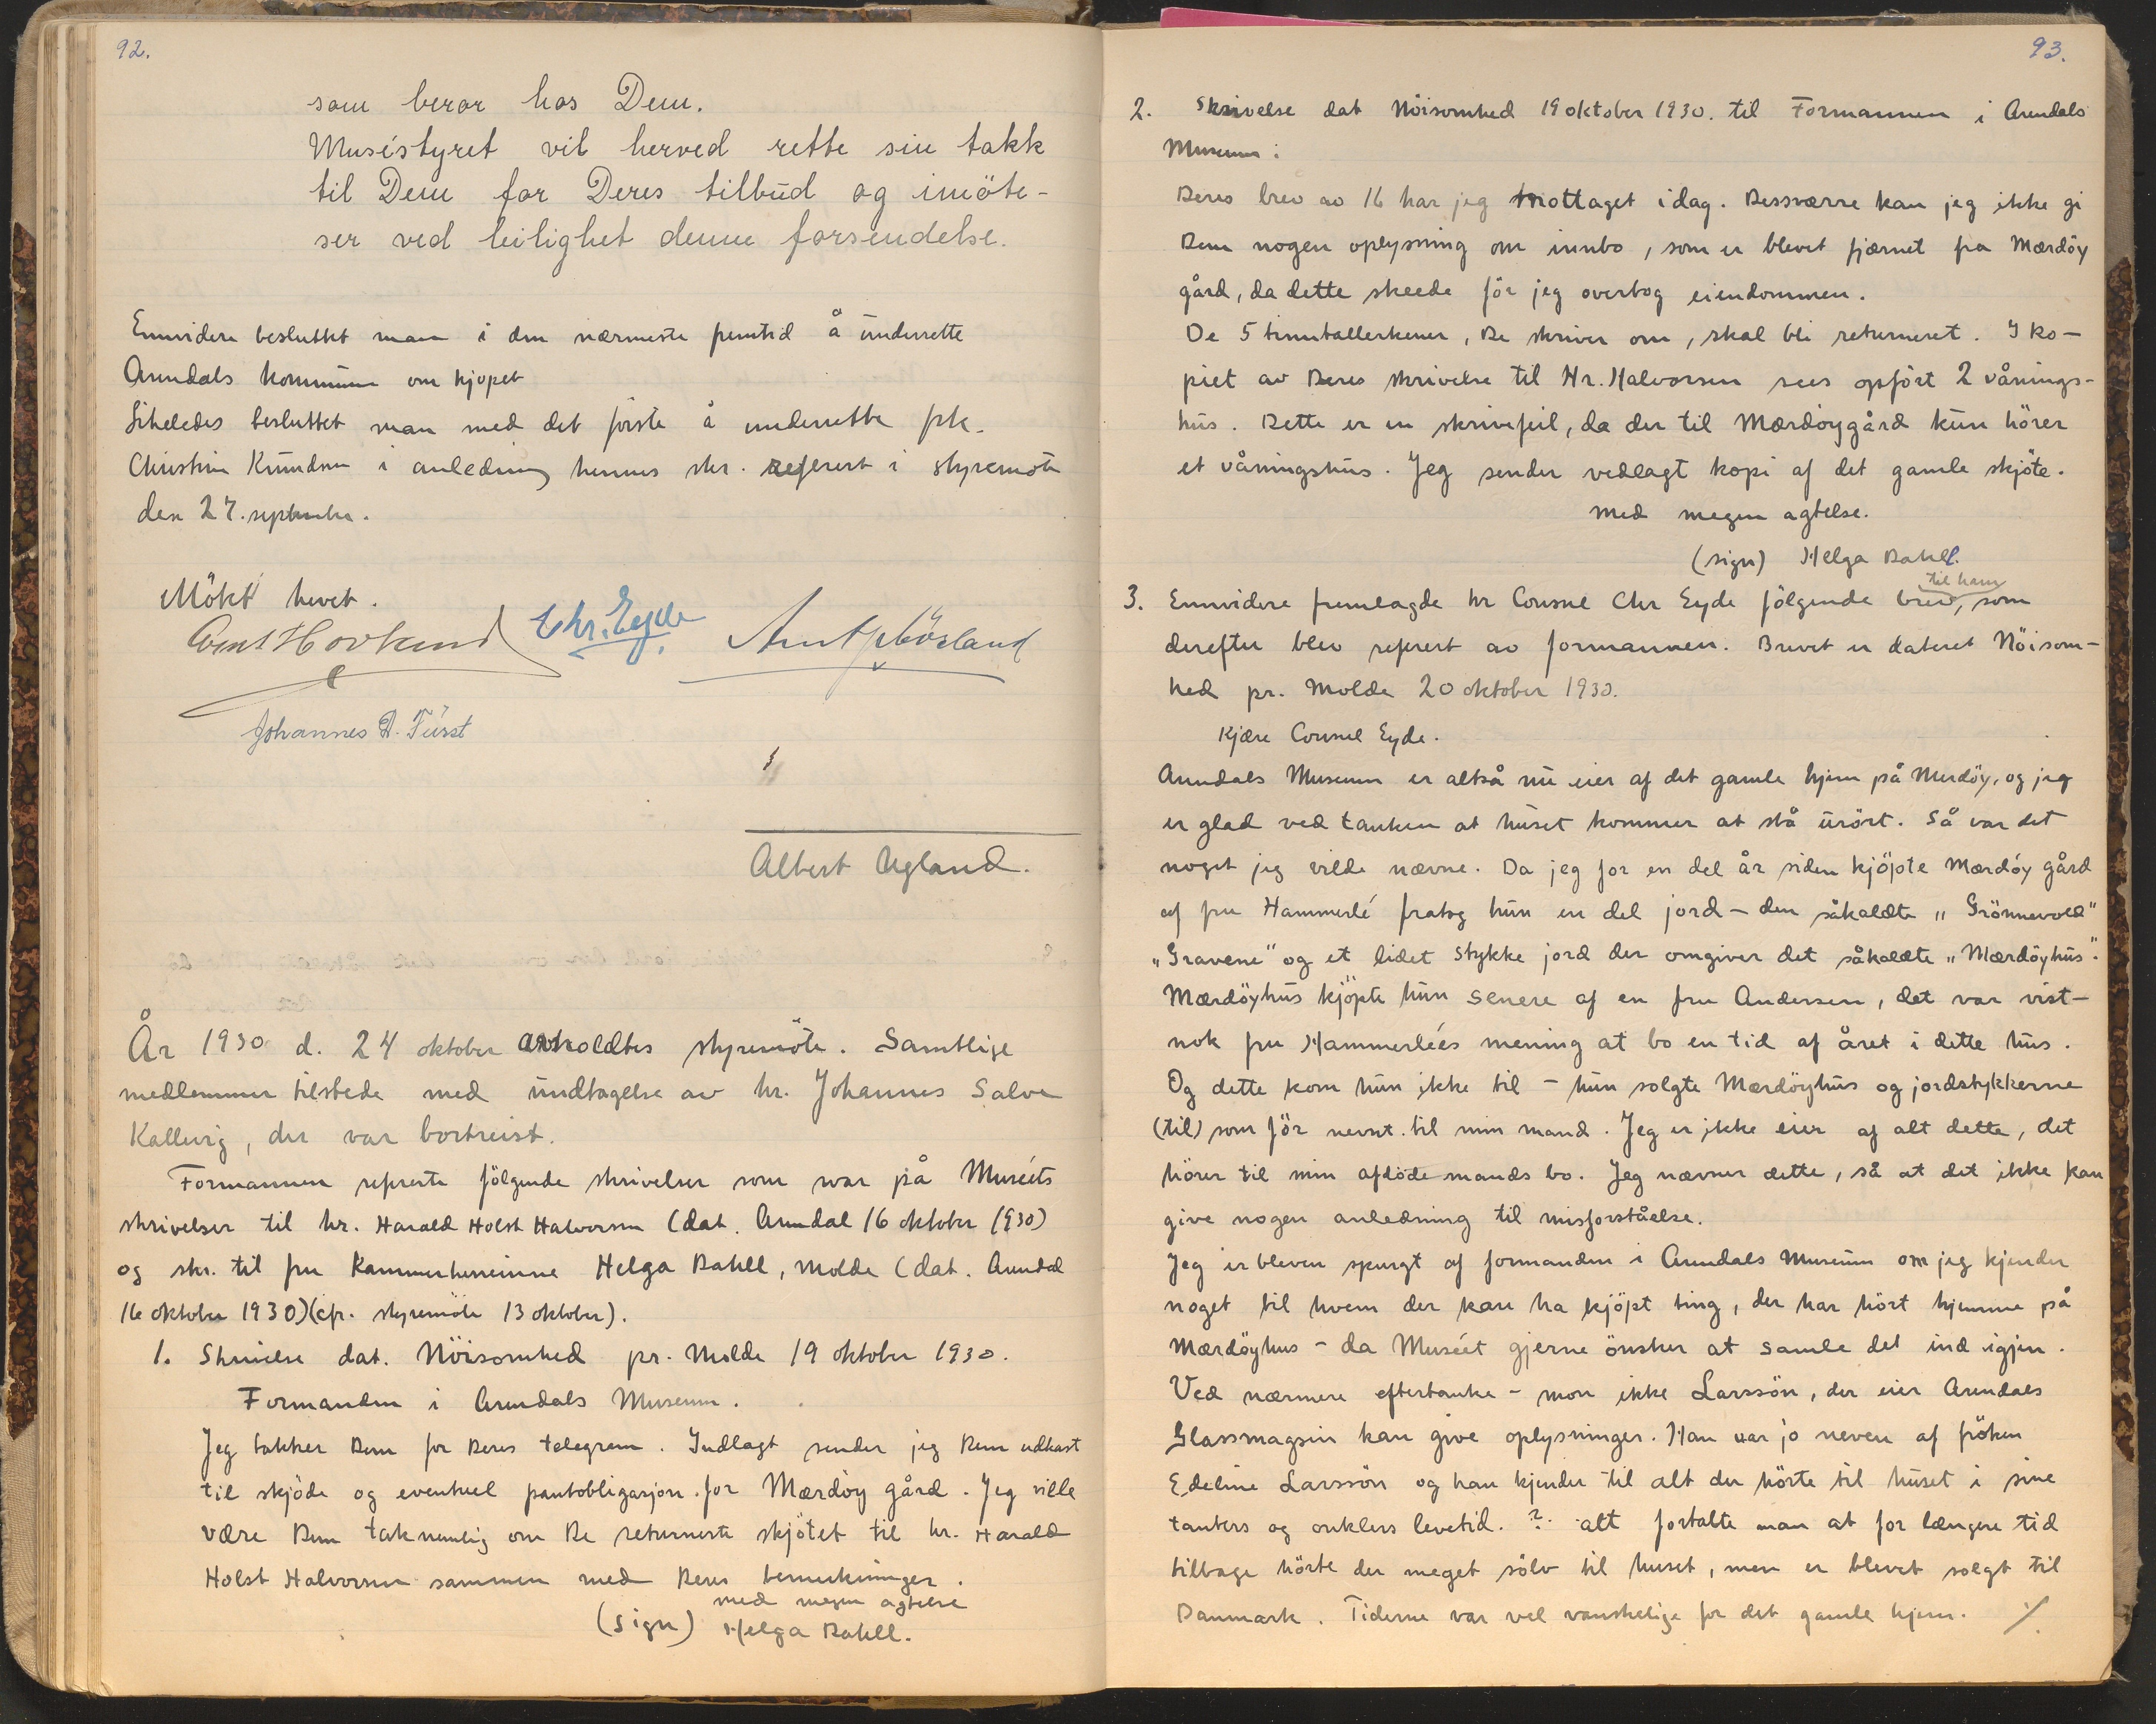 92.
som beror hos Dem.
Muséstyret vil herved rette sin takk
til Dem for Deres tilbud og imöte-
ser ved leilighet denne forsendelse.
Ennvidere besluttet man i den nærmeste fremtid å underrette
Arendals kommune om kjøpet
Likeledes besluttet man med det förste å underrette frk.
Christine Knudsen i anledning hennes skr. referert i styremöte
den 27. september.
Mökt hevet.
Chr. Eyde
Johannes A. Fürst
Albert Ugland.
År 1930 d. 24 oktober avholdtes styremöte. Samtlige
medlemmer tilstede med undtagelse av hr. Johannes Salve
Kallevig, der var bortreist.
Formannen refererte fölgende skrivelser som svar på Muséets
skrivelser til hr. Harald Holst Halvorsen (dat. Arendal 16 oktober 1930)
og skr. til fru Kammerherreinne Helga Dahll, Molde (dat. Arendal
16 oktober 1930)(cfr. styremöte 13 oktober).
1. Skrivelse dat. Nöisomhed pr. Molde 19 oktober 1930.
Formanden i Arendals Museum.
Jeg takker Dem for Deres telegram. Indlagt sender jeg Dem udkast
til skjöde og eventuel pantobligasjon for Mærdöy gård. Jeg ville
være Dem taknemlig om De returnerte skjötet til hr. Harald
Holst Halvorsen sammen med Deres bemerkninger.
med megen agtelse
(sign) Helga Dahll.
93.
2. Skrivelse dat Nöisomhed 19 oktober 1930. til Formannen i Arendals
Museum:
Deres brev av 16 har jeg mottaget idag. Dessværre kan jeg ikke gi
Dem nogen oplysning om innbo, som er blevet fjærnet fra Mærdöy
gård, da dette skeede för jeg overtog eiendommen.
De 5 tinntallerkener, De skriver om, skal bli returneret. I ko-
piet av Deres skrivelse til Hr. Halvorsen sees opfört 2 vånings-
hus. Dette er en skrivefeil, da der til Mærdöygård kun hörer
et våningshus. Jeg sender vedlagt kopi af det gamle skjöte.
Med megen agtelse.
(sign) Helga Dahll.
3. Ennvidere fremlagde hr Consul Chr Eyde fölgende brev til ham, som
derefter blev referert av formannen. Brevet er dateret Nöisom-
hed pr. Molde 20 oktober 1930.
Kjære Consul Eyde.
Arendals Museum er altså nu eier af det gamle hjem på Merdöy, og jeg
er glad ved tanken at huset kommer at stå urört. Så var det
noget jeg vilde nævne. Da jeg for en del år siden kjöpte Mærdöy gård
af fru Hammerlé fratog hun en del jord – den såkaldte „Grönnevold"
„Gravene" og et lidet stykke jord der omgiver det såkaldte „Mærdöyhus".
Mærdöyhus kjöpte hun senere af en fru Andersen, det var vist-
nok fru Hammerléés mening at bo en tid af året i dette hus.
Og dette kom hun ikke til – hun solgte Mærdöyhus og jordstykkerne
(til) som för nevnt. til min mand. Jeg er ikke eier af alt dette, det
hörer til min afdöde mands bo. Jeg nævner dette, så at det ikke kan
give nogen anledning til misforståelse.
Jeg er bleven spurgt af formanden i Arendals Museum om jeg kjender
noget til hvem der kan ha kjöpt ting, der har hört hjemme på
Mærdöyhus – da Muséet gjerne önsker at samle det ind igjen.
Ved nærmere eftertanke – mon ikke Larssön, der eier Arendals
Glassmagsin kan give oplysninger. Han var jo neven af fröken
Edeline Larssön og han kjender til alt der hörte til huset i sine
tanters og onklers levetid. ? alt fortalte man at for længere tid
tilbage hörte der meget sölv til huset, men er blevet solgt til
Danmark. Tiderne var vel vanskelige for det gamle hjem. ./.